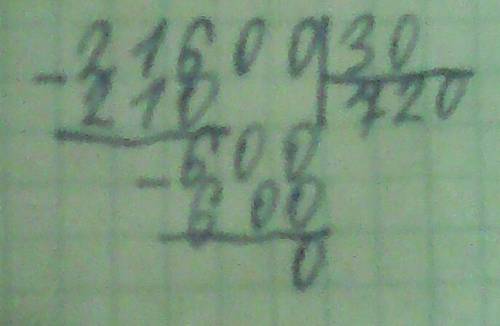 - 21600 | 30
210 | 720
- 600
600
0